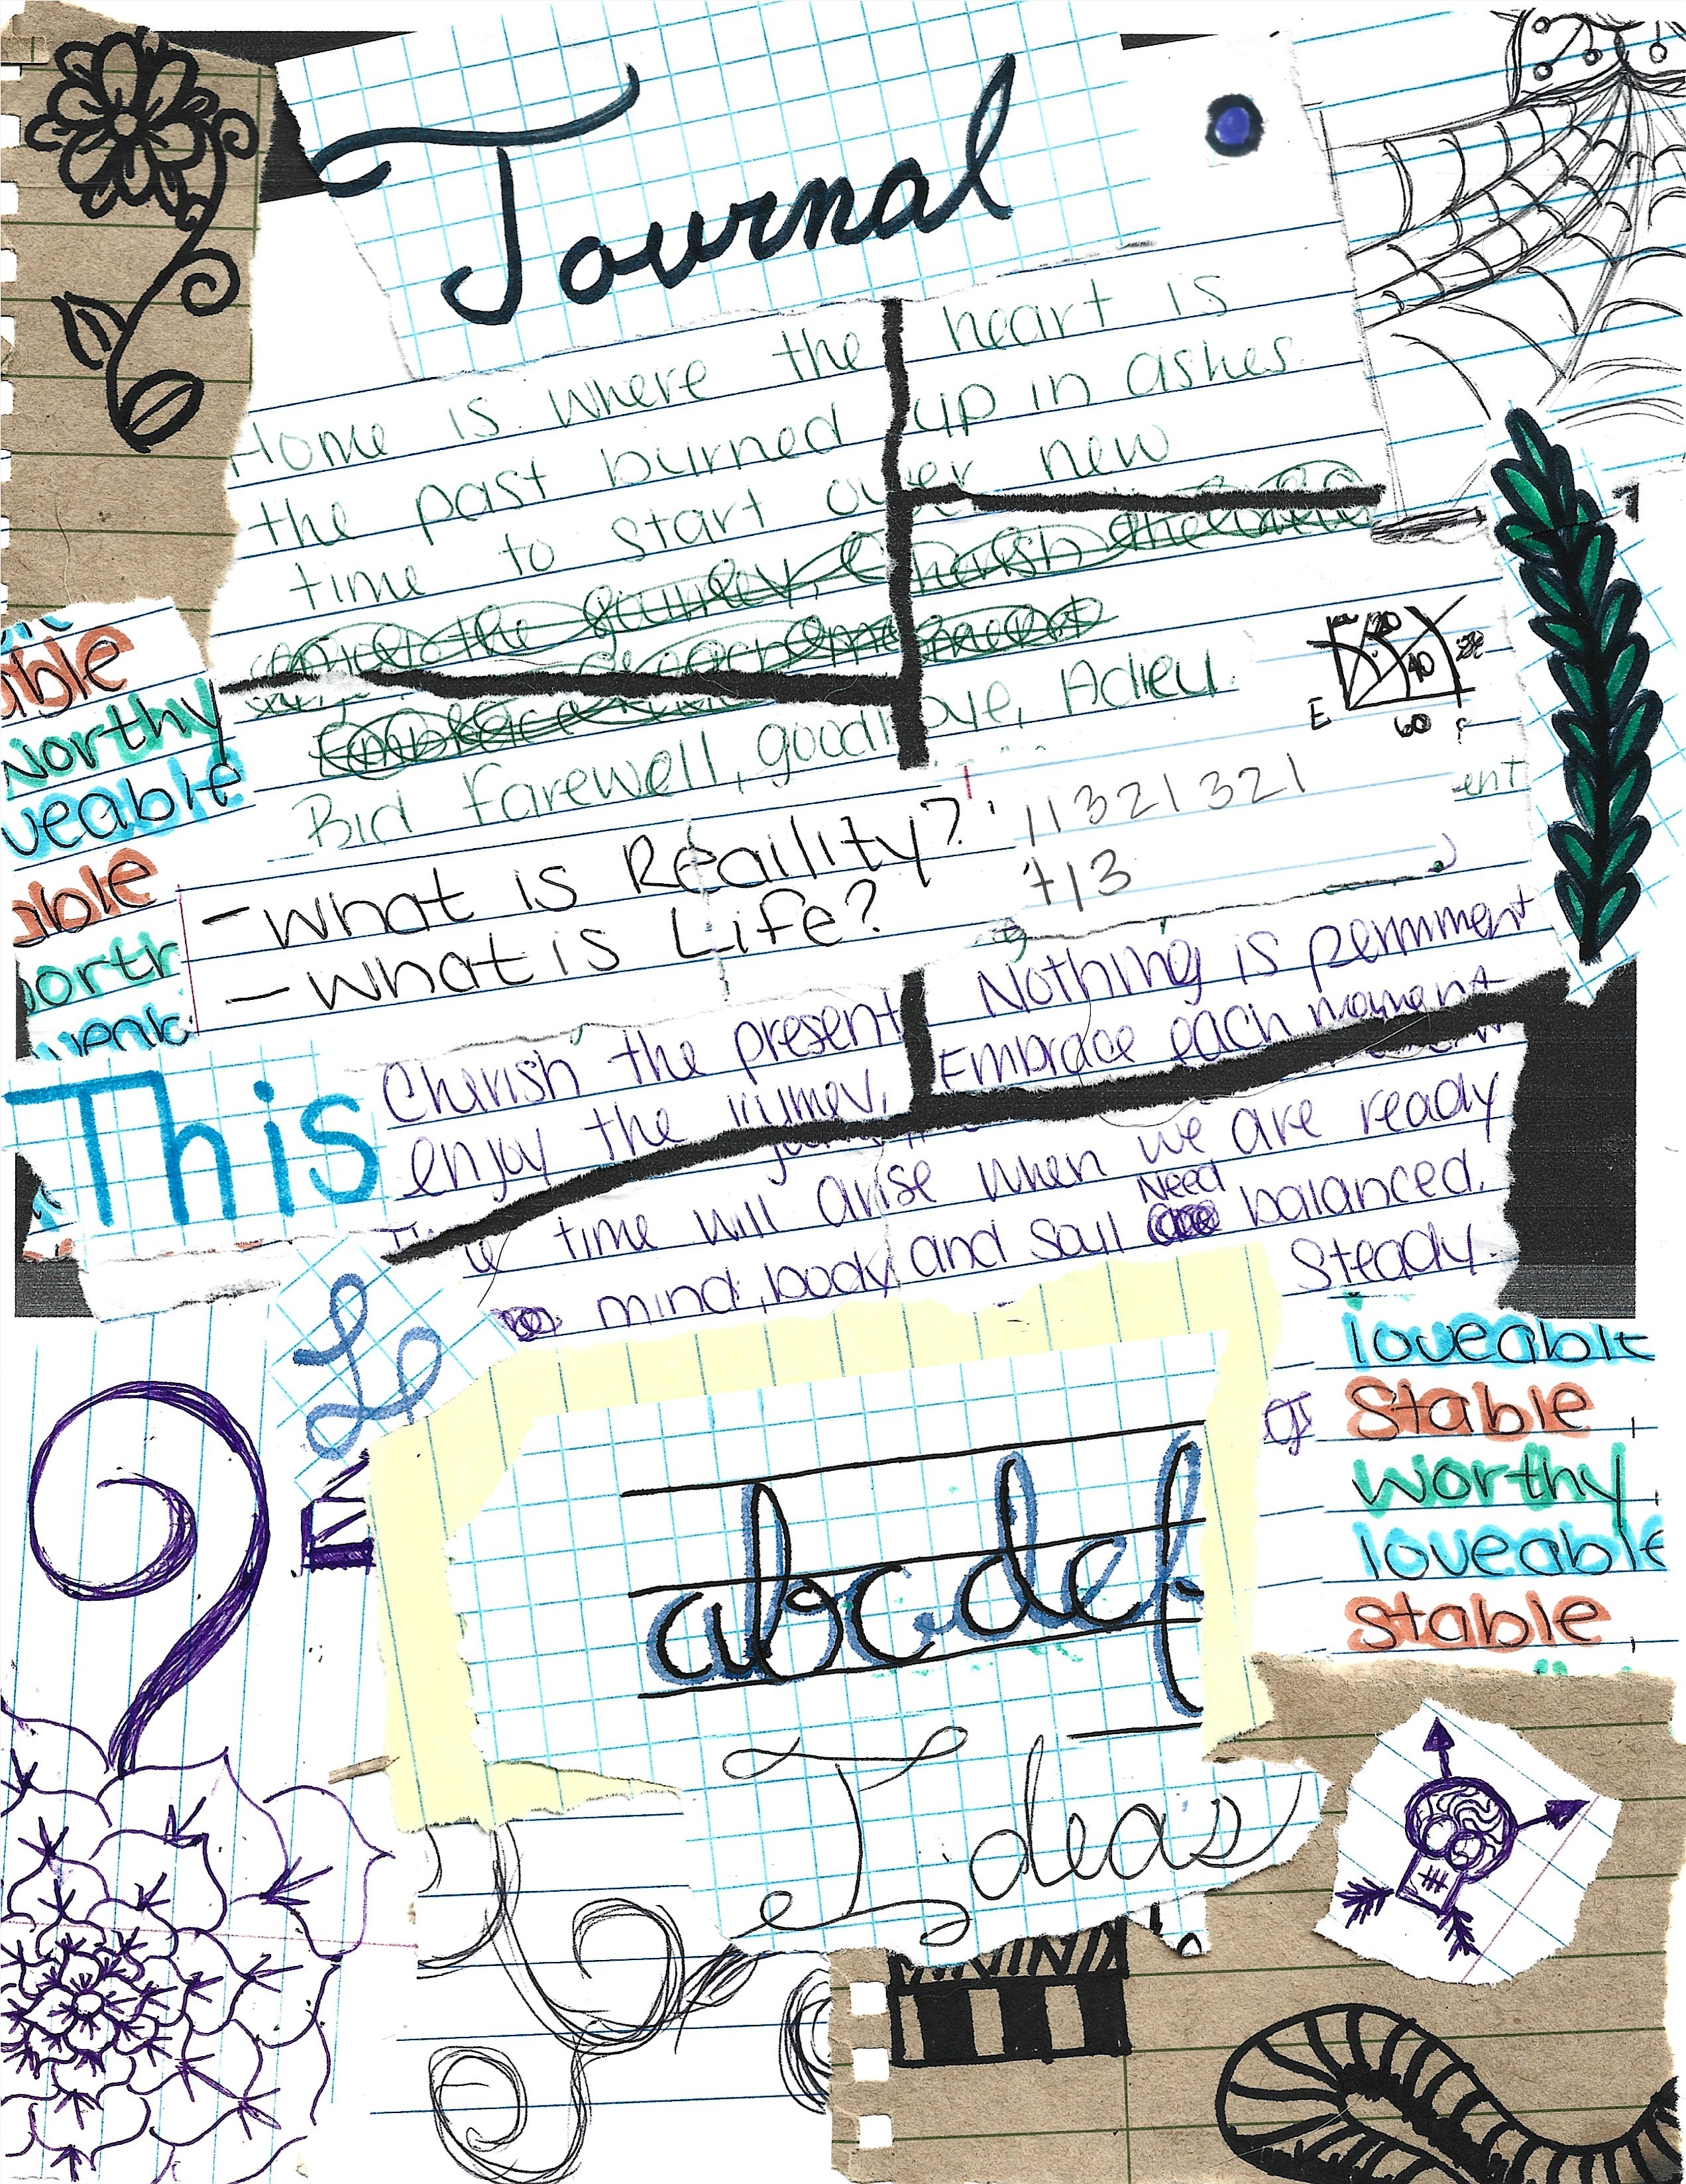 Journal
Home is where the heart is
the past burned up in ashes
time to start over new
Bid farewell, goodbye, Adieu
able
Worthy
veable
able
orth
E
20
40
60
- What is Reaility?
- What is Life?
11321321
713
ent
Nothing is permment
Cherish the present
Embrace each moment
enjoy the
This
time will arise when we are ready
mind, body and soul Need balanced.
Steady.
loveable
Stable,
worthy,
loveable
stable,
abcdef
Ideas